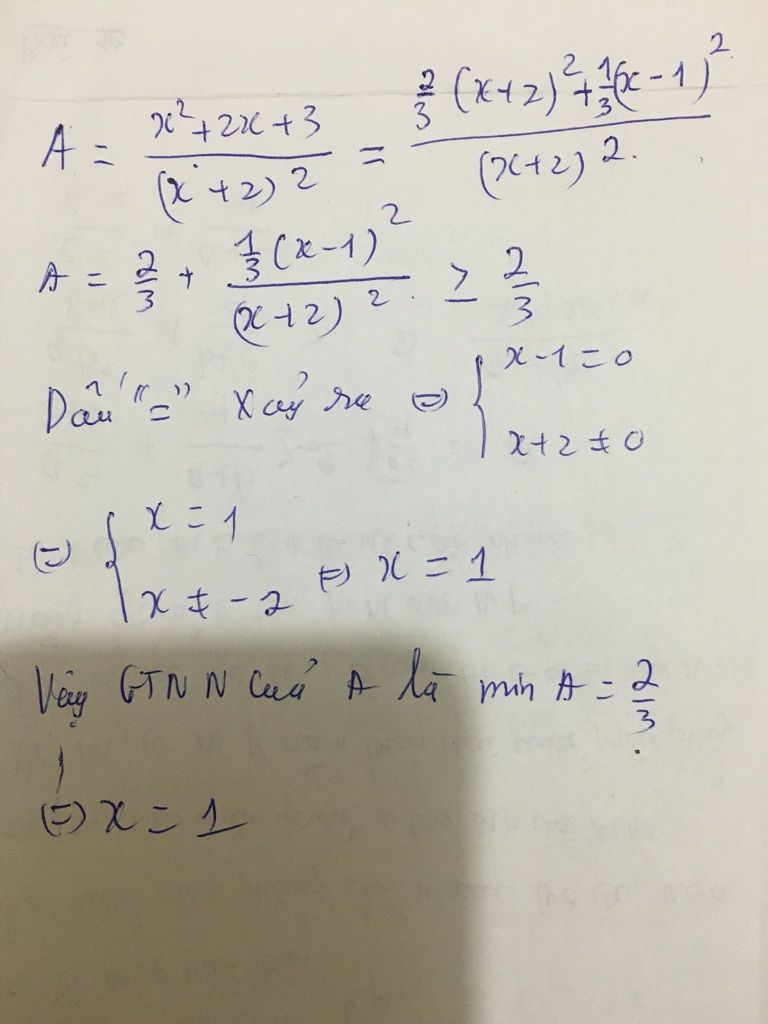 A = \frac{x^2+2x+3}{(x+2)^2} = \frac{\frac{2}{3}(x+2)^2+\frac{1}{3}(x-1)^2}{(x+2)^2}
A = \frac{2}{3} + \frac{\frac{1}{3}(x-1)^2}{(x+2)^2} ≥ \frac{2}{3}
Dấu "=" xảy ra ⇔ { x-1=0
x+2≠0
⇔ { x=1
x≠-2 ⇔ x=1
Vậy GTNN của A là min A = \frac{2}{3}
⇔ x=1